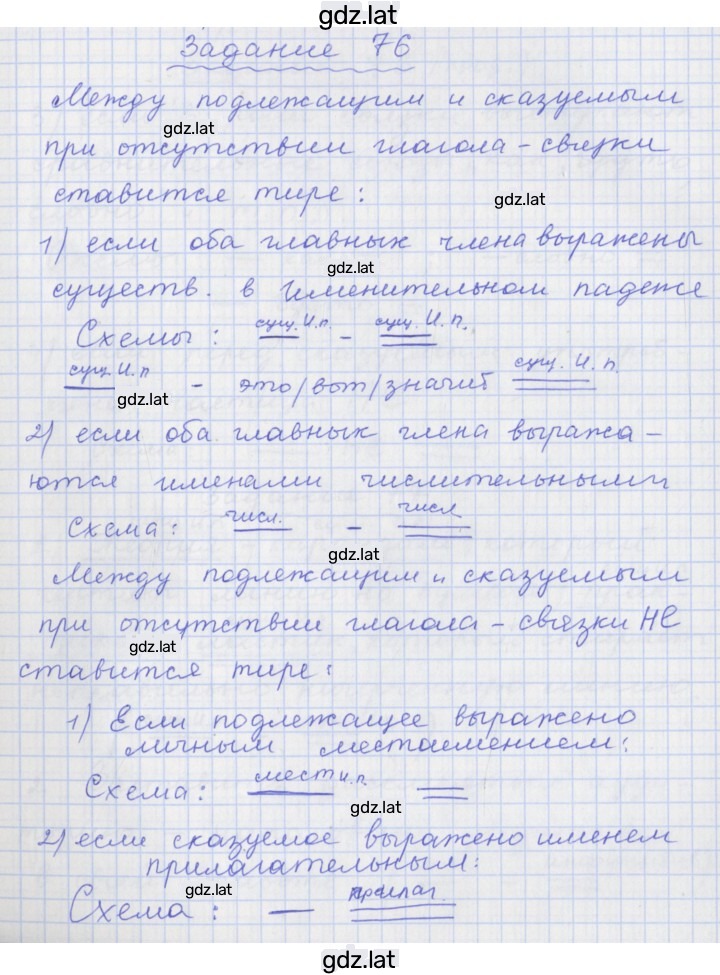 gdz.lat
Задание 76
Между подлежащим и сказуемым
gdz.lat
при отсутствии глагола-связки
ставится тире:
gdz.lat
1) если оба главных члена выражены
gdz.lat
существ. в именительном падеже
Схемы: сущ. И.п. - сущ. И.п.
сущ. И.п - это/вот/значит сущ. И.п.
gdz.lat
2) если оба главных члена выража-
ются именами числительными
Схема: числ. - числ
gdz.lat
Между подлежащим и сказуемым
при отсутствии глагола-связки НЕ
gdz.lat
ставится тире:
1) Если подлежащее выражено
личным местоимением:
Схема: мест И.п.
gdz.lat
2) если сказуемое выражено именем
прилагательным:
gdz.lat
Схема: прилаг.
gdz.lat